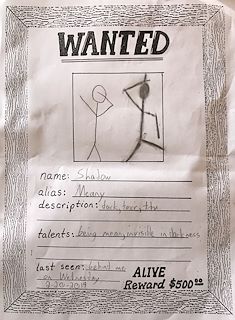 WANTED
name: Shadow
alias: Meany
description: dark, terrifty
talents: being mean, invisible in darkness
last seen: behind me
on Wednesday
2-20-2019
ALIVE
Reward $500⁰⁰